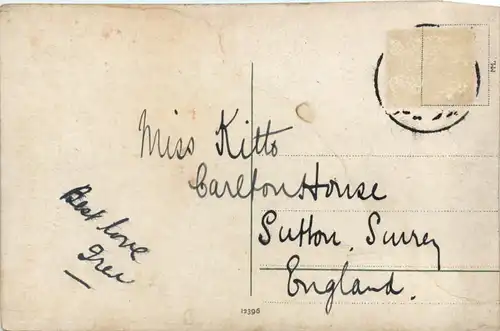 Miss Kitto
Carlton House
Sutton. Surrey
England.
Best love
12396